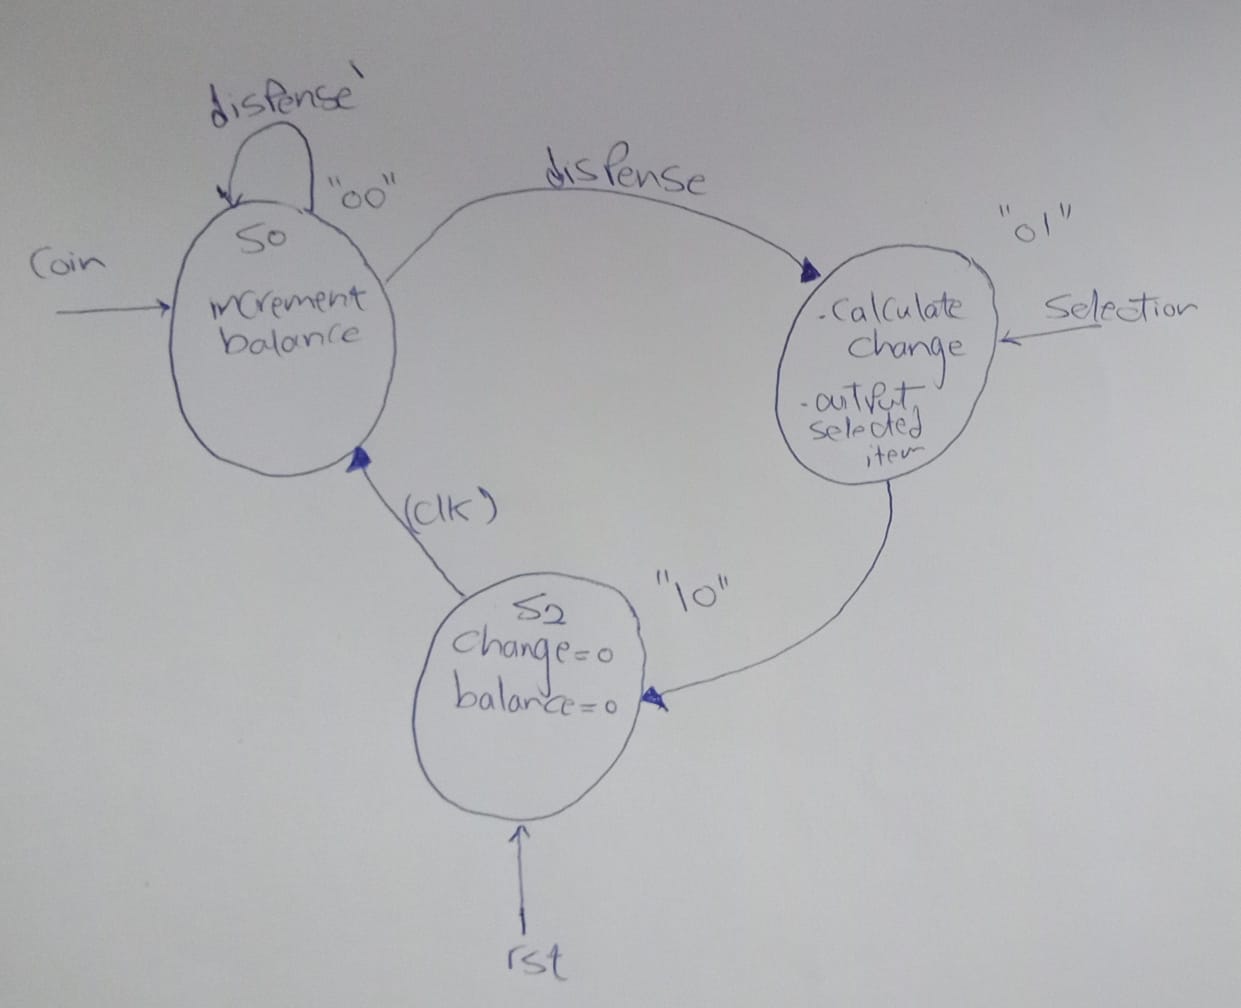 dispense'
"00"
dispense
"01"
Coin
S0
increment
balance
- Calculate
change
- output
selected
item
Selection
(clk)
"10"
S2
Change=0
balance=0
rst